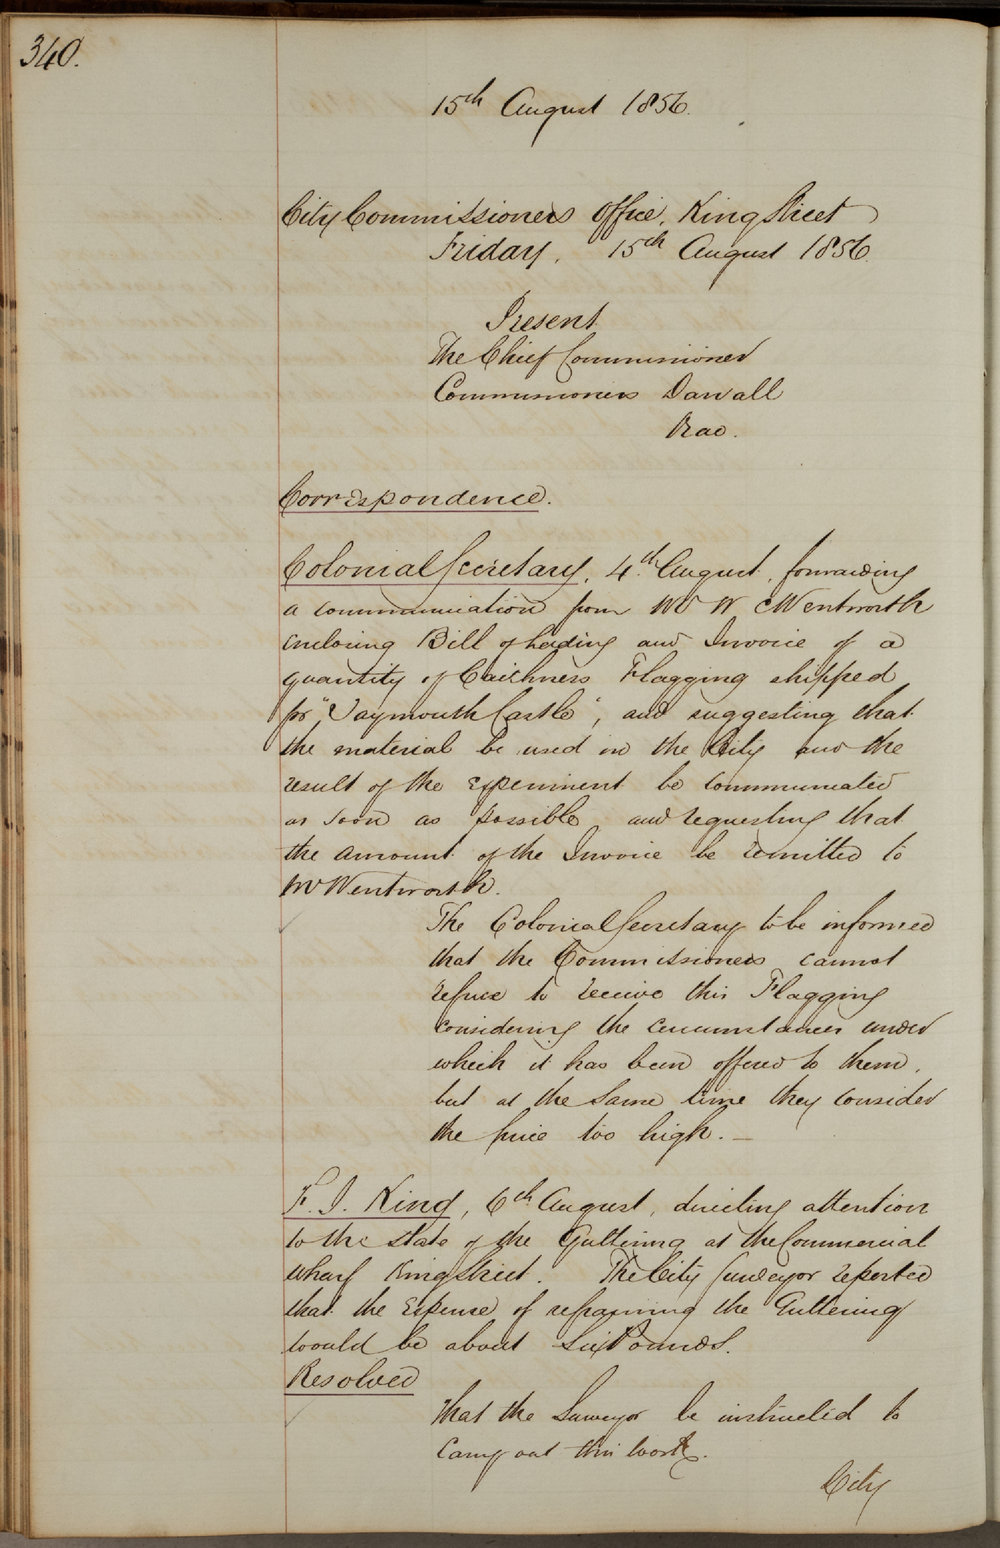 340.
15th August 1856.
City Commissioners Office, King Street
Friday, 15th August 1856.
Present
The Chief Commissioner
Commissioners Darvall
Rae.
Correspondence.
Colonial Secretary, 4th August, forwarding
a communication from Mr W C Wentworth
enclosing Bill of Lading and Invoice of a
quantity of Caithness Flagging shipped
pr "Taymouth Castle", and suggesting that
the material be used in the City and the
result of the experiment be communicated
as soon as possible, and requesting that
the amount of the Invoice be remitted to
Mr Wentworth.
The Colonial Secretary to be informed
that the Commissioners cannot
refuse to receive this Flagging
considering the circumstances under
which it has been offered to them,
but at the same time they consider
the price too high. —
F. J. King, 6th August, directing attention
to the state of the Guttering at the Commercial
Wharf King Street. The City Surveyor reported
that the Expense of repairing the Guttering
would be about Six Pounds.
Resolved
That the Surveyor be instructed to
carry out this work.
City